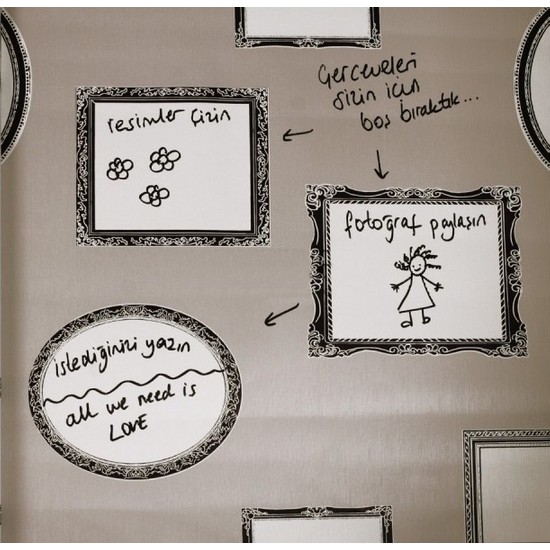 Çerçeveleri
sizin için
boş bıraktık...
resimler çizin
fotoğraf paylaşın
istediğinizi yazın
all we need is
LOVE